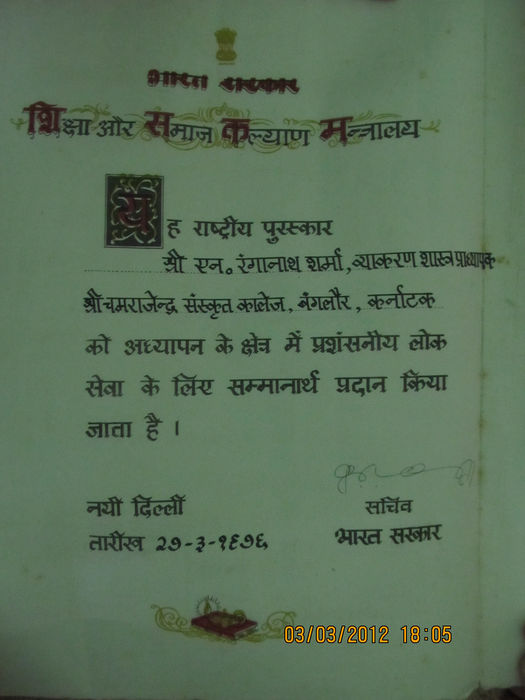 भारत सरकार
शिक्षा और समाज कल्याण मन्त्रालय
यह राष्ट्रीय पुरस्कार
श्री एन॰ रंगानाथ शर्मा, व्याकरण शास्त्र प्राध्यापक
श्री चमराजेन्द्र संस्कृत कालेज, बंगलौर, कर्नाटक
को अध्यापन के क्षेत्र में प्रशंसनीय लोक
सेवा के लिए सम्मानार्थ प्रदान किया
जाता है ।
नयी दिल्ली
तारीख २७-३-१९७६
सचिव
भारत सरकार
03/03/2012 18:05